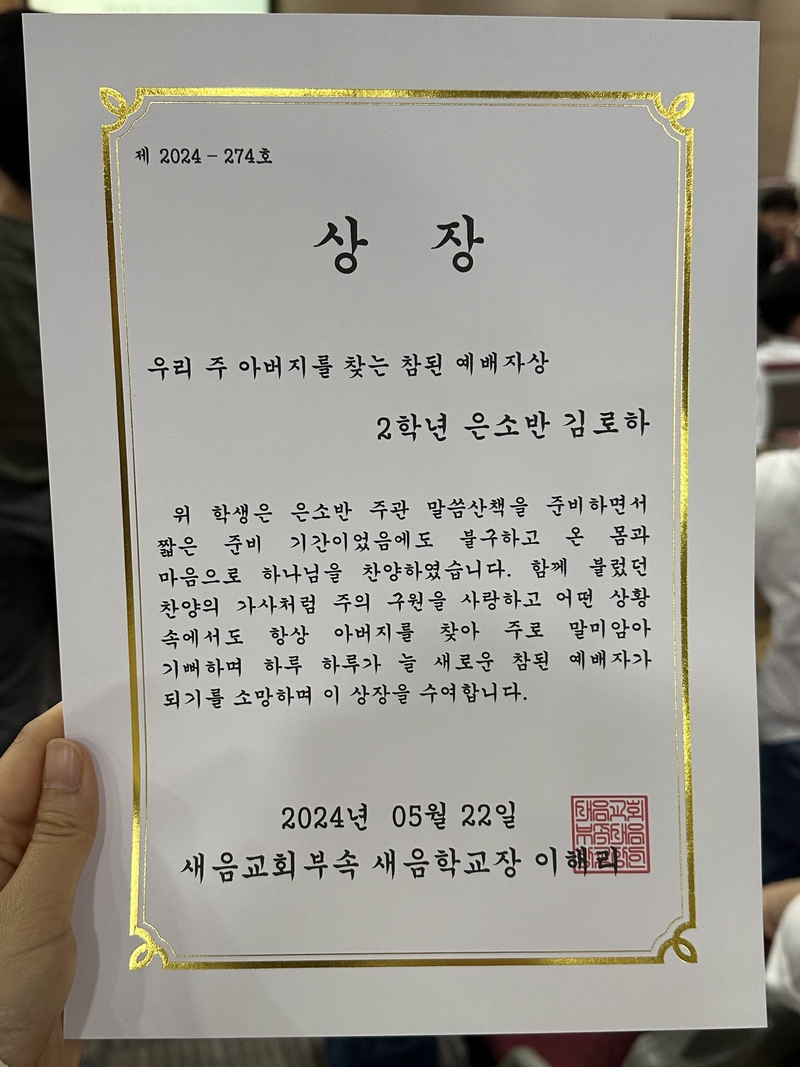 제 2024 - 274호
상 장
우리 주 아버지를 찾는 참된 예배자상
2학년 은소반 김로하
위 학생은 은소반 주관 말씀산책을 준비하면서
짧은 준비 기간이었음에도 불구하고 온 몸과
마음으로 하나님을 찬양하였습니다. 함께 불렀던
찬양의 가사처럼 주의 구원을 사랑하고 어떤 상황
속에서도 항상 아버지를 찾아 주로 말미암아
기뻐하며 하루 하루가 늘 새로운 참된 예배자가
되기를 소망하며 이 상장을 수여합니다.
2024년 05월 22일
새음교회부속 새음학교장 이해리